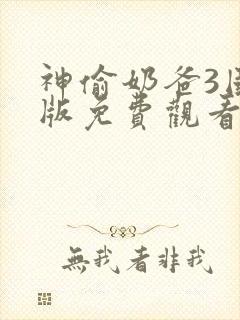 神偷奶爸3国
版免費觀看
無我者非我